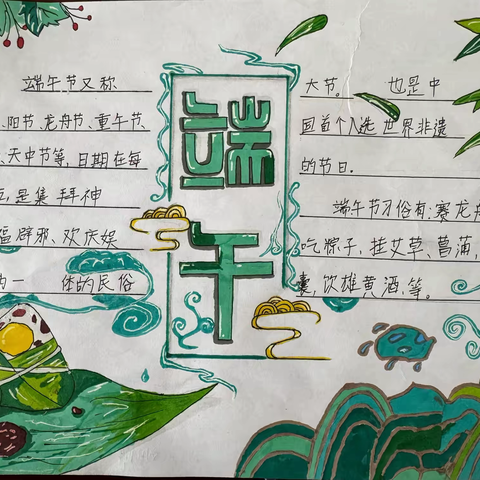 端午节又称
、阳节、龙舟节、重午节、
、天中节等,日期在每
,是集 拜神
辟邪、欢庆娱
为一 体的民俗
端
午
大节。 也是中
国首个入选 世界非遗
的节日。
端午节习俗有:赛龙舟
吃粽子,挂艾草、菖蒲,
囊,饮雄黄酒,等。